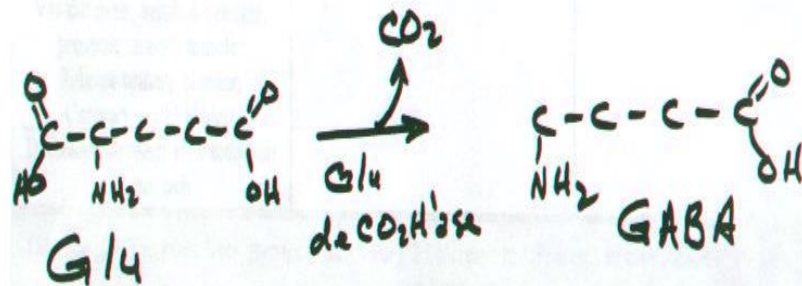 CO2
O O
C - C - C - C - C
HO NH2 OH
Glu
Glu
deCO2H'ase
C - C - C - C O
NH2 OH
GABA